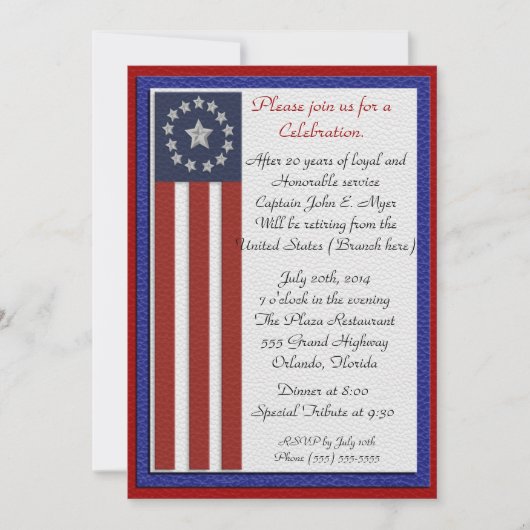 Please join us for a
Celebration.
After 20 years of loyal and
Honorable service
Captain John E. Myer
Will be retiring from the
United States (Branch here)
July 20th, 2014
7 o'clock in the evening
The Plaza Restaurant
555 Grand Highway
Orlando, Florida
Dinner at 8:00
Special Tribute at 9:30
RSVP by July 10th
Phone (555) 555-5555